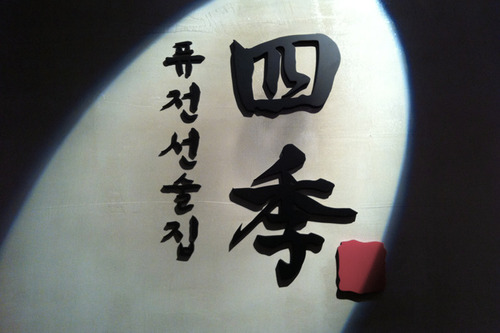 四季
퓨전선술집